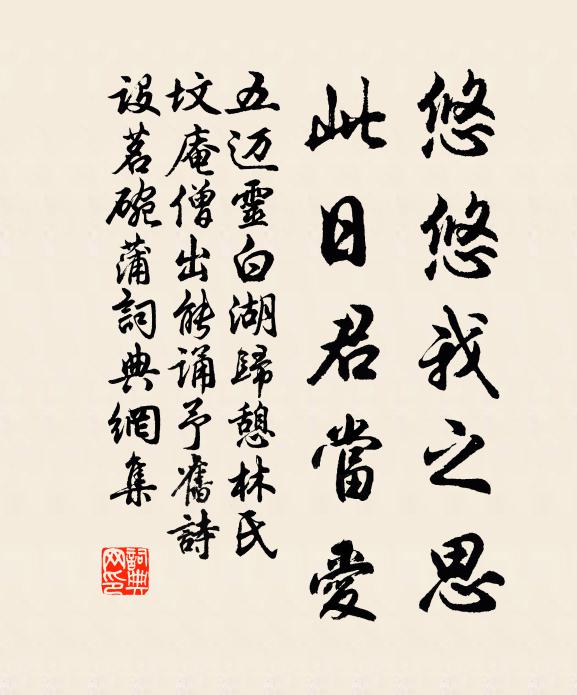 悠悠我之思
此日君當愛
五迈靈白湖歸憩林氏
坟庵僧出能誦予舊詩
设茗碗蒲詞典網集
詞典网印